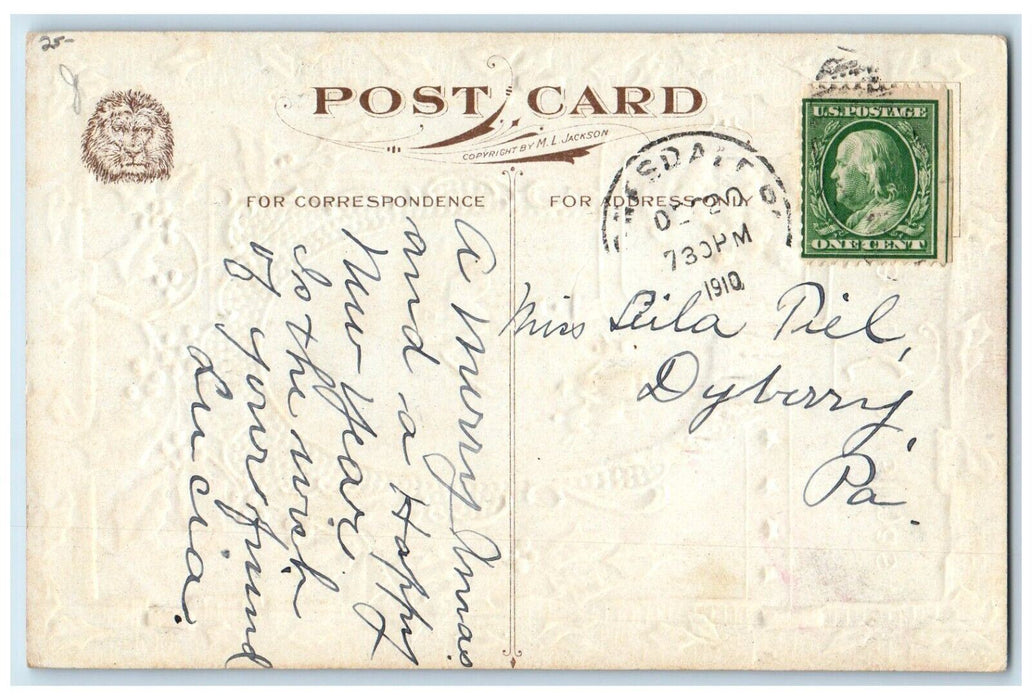 25-
POST CARD
COPYRIGHT BY M. L. JACKSON
FOR CORRESPONDENCE
FOR ADDRESS ONLY
U.S. POSTAGE
ONE CENT
20
730PM
1910
A Merry Xmas
and a Happy
New Year
Is the wish
of your friend
Lucia.
Miss Leila Piel,
Dyberry
Pa.